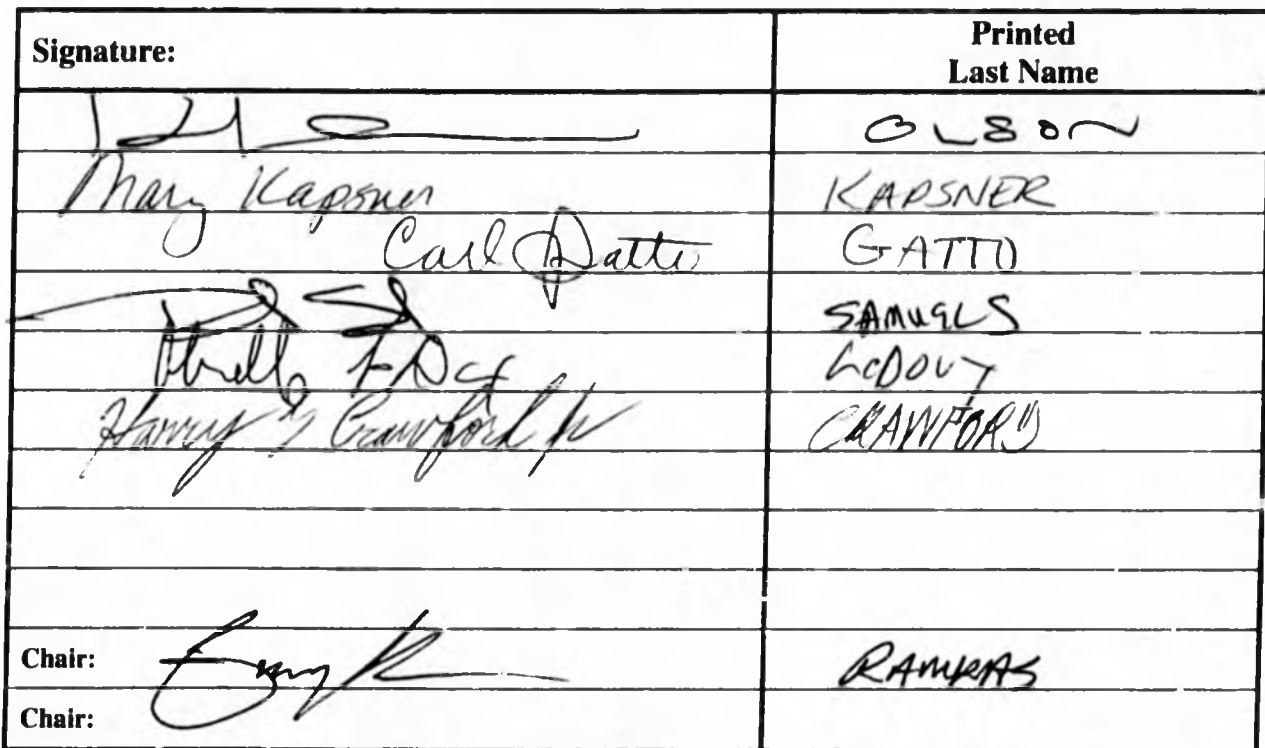 Signature: Printed Last Name
OLSON
Mary Kapsner KAPSNER
Carl Gatto GATTO
SAMUELS
LeDOUX
Harry Crawford Jr CRAWFORD
Chair: RAMRAS
Chair: